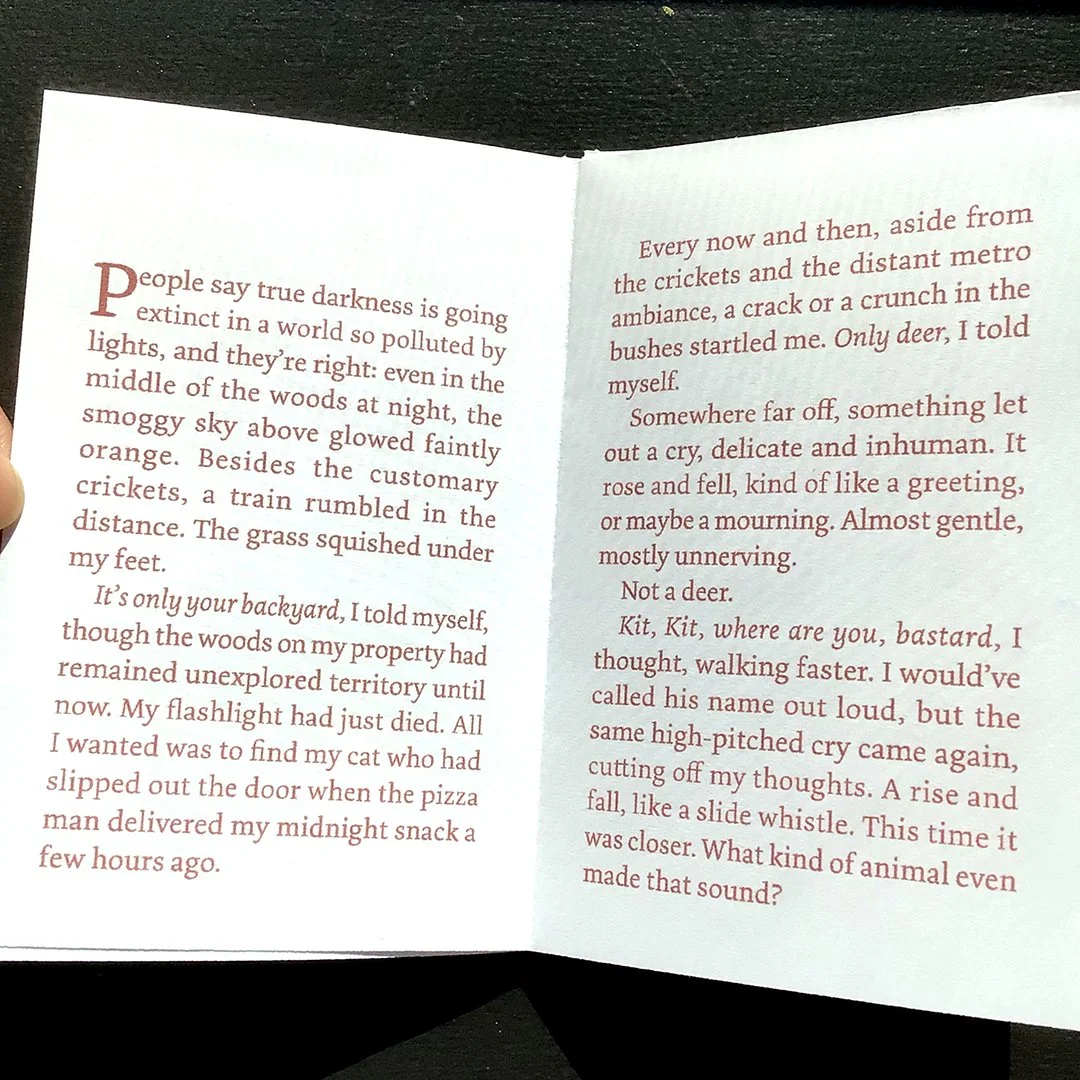 People say true darkness is going
extinct in a world so polluted by
lights, and they’re right: even in the
middle of the woods at night, the
smoggy sky above glowed faintly
orange. Besides the customary
crickets, a train rumbled in the
distance. The grass squished under
my feet.
It’s only your backyard, I told myself,
though the woods on my property had
remained unexplored territory until
now. My flashlight had just died. All
I wanted was to find my cat who had
slipped out the door when the pizza
man delivered my midnight snack a
few hours ago.
Every now and then, aside from
the crickets and the distant metro
ambiance, a crack or a crunch in the
bushes startled me. Only deer, I told
myself.
Somewhere far off, something let
out a cry, delicate and inhuman. It
rose and fell, kind of like a greeting,
or maybe a mourning. Almost gentle,
mostly unnerving.
Not a deer.
Kit, Kit, where are you, bastard, I
thought, walking faster. I would’ve
called his name out loud, but the
same high-pitched cry came again,
cutting off my thoughts. A rise and
fall, like a slide whistle. This time it
was closer. What kind of animal even
made that sound?